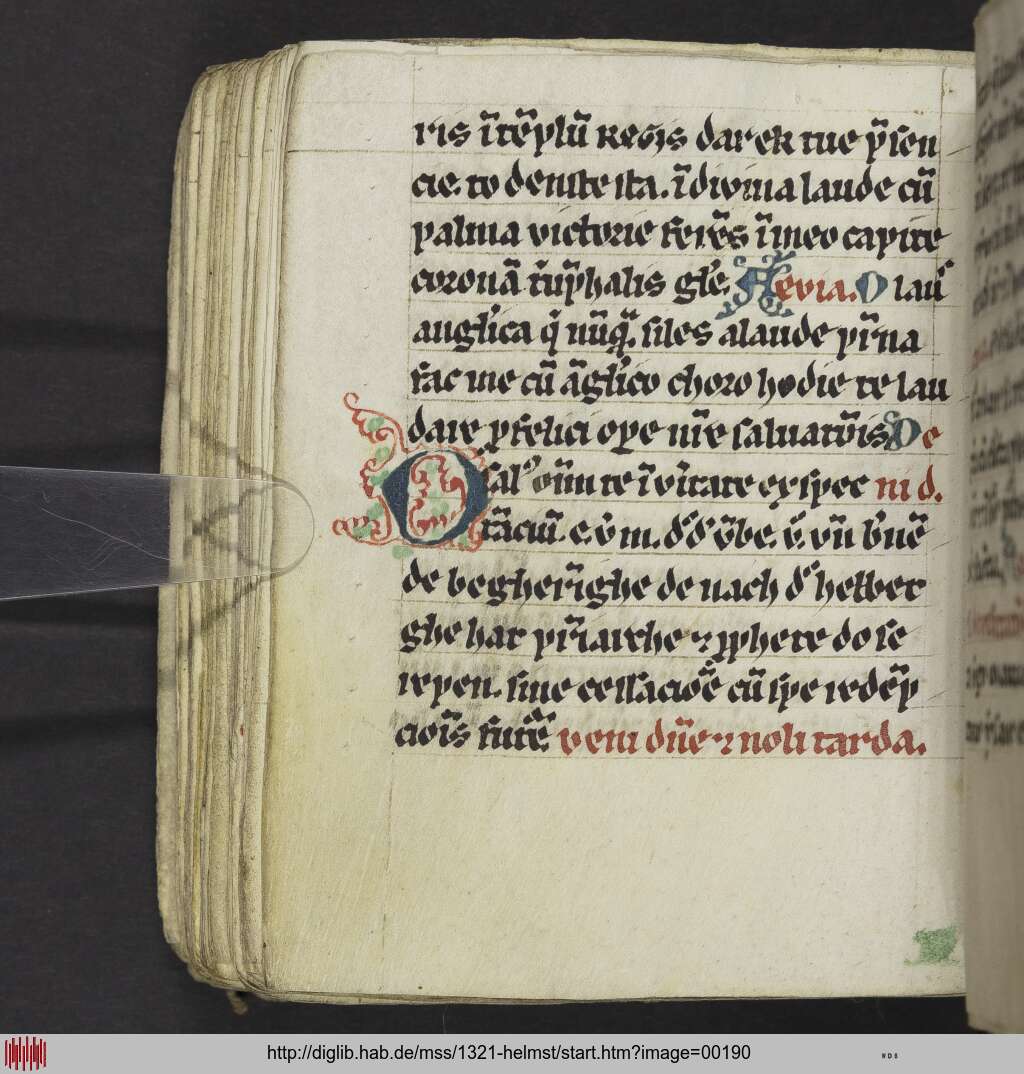 ris ī tēplū Regis dar ek tue p̄sen
cie. to denste sta. ī diuina laude cū
palma victorie ferēs ī meo capite
coronā tūphalis gl̄e. Aeuia. O lau⁹
angl̄ica q̄ nūq̄ siles a laude pr̄na
fac me cū āgl̄ico choro hodie te lau
dare p felici ope nr̄e saluatōis De
sal' oīm te ī vītate exspec ni d.
tāciū. e. v̄ m. d' d' v̄be. v̄ vn̄ b'nē
de begherīghe de nach d' helber
ghe hat pr̄iarche ⁊ pphete do se
repen. sine cessacioē cū spe redēp
ciōis futē veni dn̄e ⁊ noli tarda.
http://diglib.hab.de/mss/1321-helmst/start.htm?image=00190